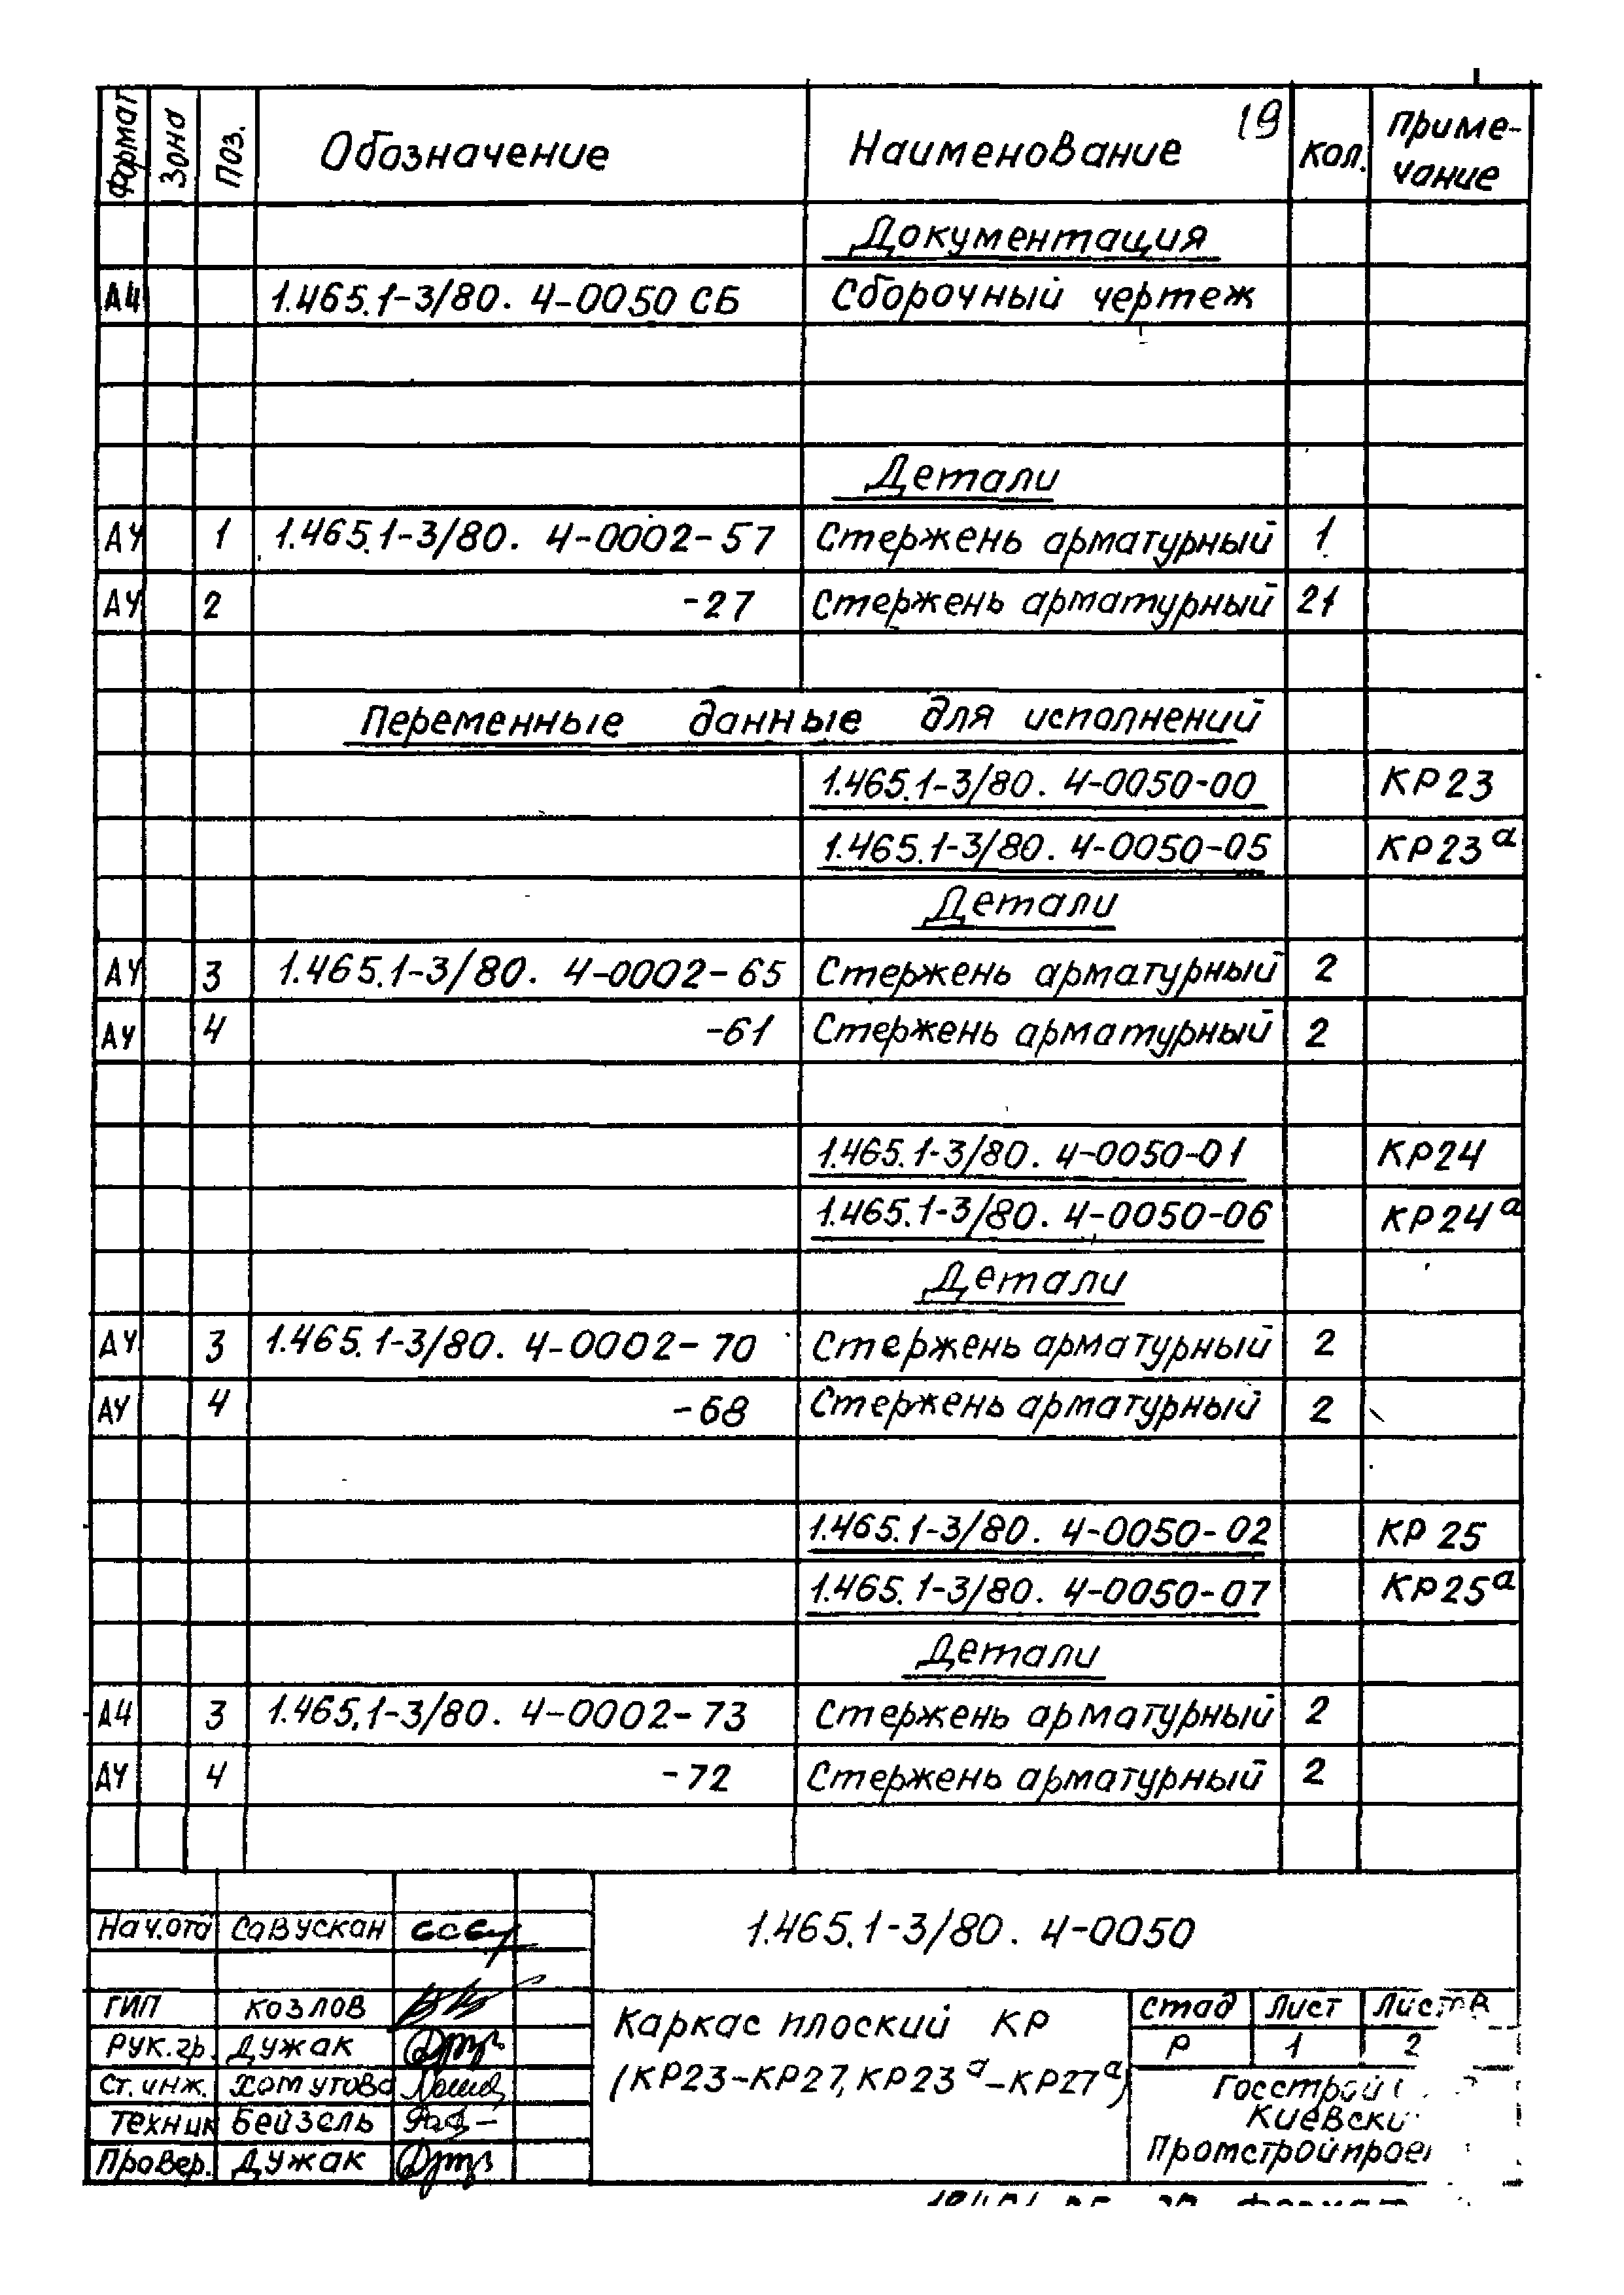 19
Формат Зона Поз. Обозначение Наименование Кол. Приме-
чание
Документация
А4 1.465.1-3/80. 4-0050 СБ Сборочный чертеж
Детали
А4 1 1.465.1-3/80. 4-0002-57 Стержень арматурный 1
А4 2 -27 Стержень арматурный 21
Переменные данные для исполнений
1.465.1-3/80. 4-0050-00 КР23
1.465.1-3/80. 4-0050-05 КР23а
Детали
А4 3 1.465.1-3/80. 4-0002-65 Стержень арматурный 2
А4 4 -61 Стержень арматурный 2
1.465.1-3/80. 4-0050-01 КР24
1.465.1-3/80. 4-0050-06 КР24а
Детали
А4 3 1.465.1-3/80. 4-0002-70 Стержень арматурный 2
А4 4 -68 Стержень арматурный 2
1.465.1-3/80. 4-0050-02 КР 25
1.465.1-3/80. 4-0050-07 КР25а
Детали
А4 3 1.465.1-3/80. 4-0002-73 Стержень арматурный 2
А4 4 -72 Стержень арматурный 2
Нач.отд Савускан
1.465.1-3/80. 4-0050
ГИП Козлов
Рук.гр. Дужак
Ст.инж. Хомутова
Техник Бейзель
Провер. Дужак
Каркас плоский КР
(КР23-КР27, КР23а-КР27а)
Стад Лист Листов
Р 1 2
Госстрой
Киевски
Промстройпрое